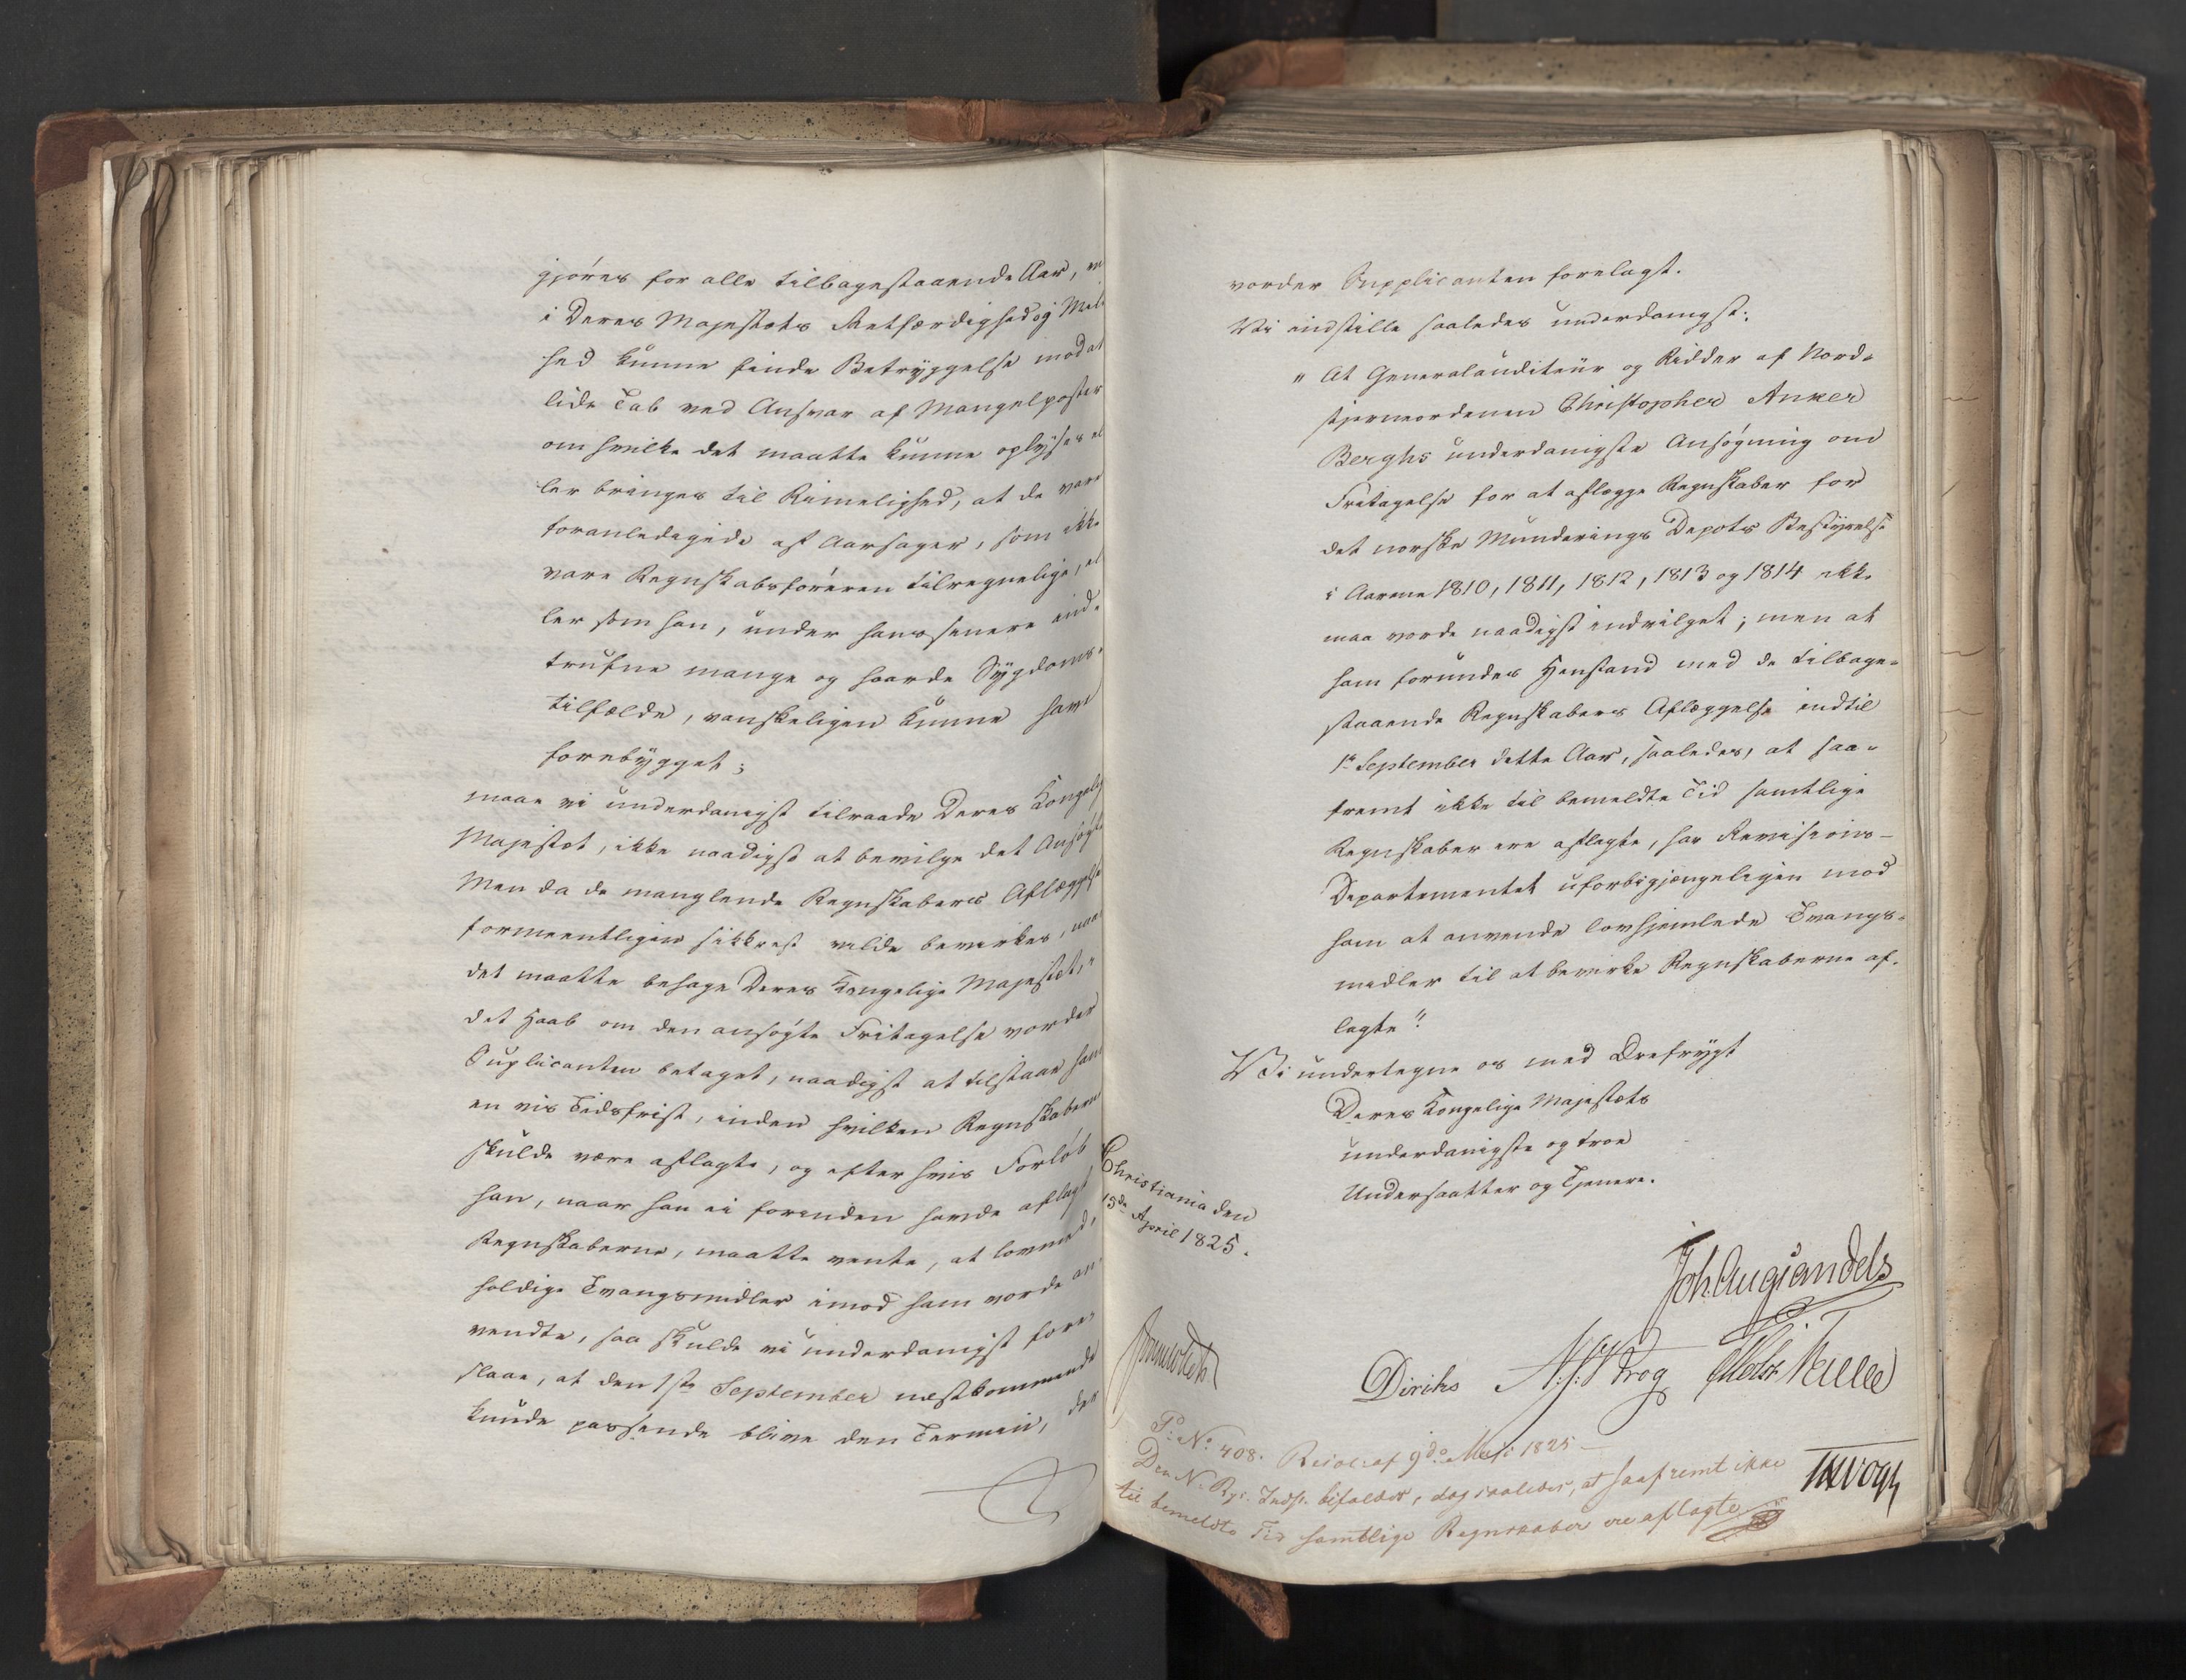 gjøres for alle tilbagestaaende Aar,
i Deres Majestæts Retfærdighed og Mild
hed kunne finde Betryggelse mod at
lide Tab ved Ansvar af Mangelposter
om hvilke det maatte kunne oplyses el
ler bringes til Rimelighed, at de vare
foranledigede af Aarsager, som ikke
vare Regnskabsføreren tilregnelige, el
ler som han, under hans senere ind-
trufne mange og haarde Sygdoms-
tilfælde, vanskeligen kunne have
forebygget;
maae vi underdanigst tilraade Deres Kongelig
Majestæt, ikke naadigst at bevilge det Ansøgte
Men da de manglende Regnskabers Aflæggelse
formeentligen sikkrest vilde bevirkes, naar
det maatte behage Deres Kongelige Majestæt,
det Haab om den ansøgte Fritagelse vorder
Supplicanten betaget, naadigst at tilstaae ham
en vis Tidsfrist, inden hvilken Regnskaberne
skulde være aflagte, og efter hvis Forløb
han, naar han ei forinden havde aflagt
Regnskaberne, maatte vente, at lovmed-
holdige Tvangsmidler imod ham vorde an-
vendte, saa skulde vi underdanigst fore-
slaae, at den 1ste September næstkommende
kunde passende blive den Termin, der
vorder Supplicanten forelagt.
Vi indstille saaledes underdanigst:
" At Generalauditeur og Ridder af Nord-
stjerneordenen Christopher Anker
Berghs underdanigste Ansøgning om
Fritagelse for at aflægge Regnskaber for
det norske Munderings Depots Bestyrelse
i Aarene 1810, 1811, 1812, 1813 og 1814 ikke
maa vorde naadigst indvilget; men at
ham forundes Henstand med de tilbage-
staaende Regnskabers Aflæggelse indtil
1ste September dette Aar, saaledes, at saa-
fremt ikke til bemeldte Tid samtlige
Regnskaber ere aflagte, har Revisions-
Departementet uforbigjængeligen mod
ham at anvende lovhjemlede Tvangs-
midler til at bevirke Regnskaberne af-
lagte".
Vi undertegne os med Ærefrygt
Deres Kongelige Majestæts
underdanigste og troe
Undersaatter og Tjenere.
Christiania den
15de April 1825.
Joh. Aug. Sandels
Sommerhielm
Diriks Krog Motzfeldt
P: No. 408. Resol: af 9de Mai 1825 —
Den N. Rgs. Indst. bifaldes, dog saaledes, at saafremt ikke
til bemeldte Tid samtlige Regnskaber ere aflagte
Vogt